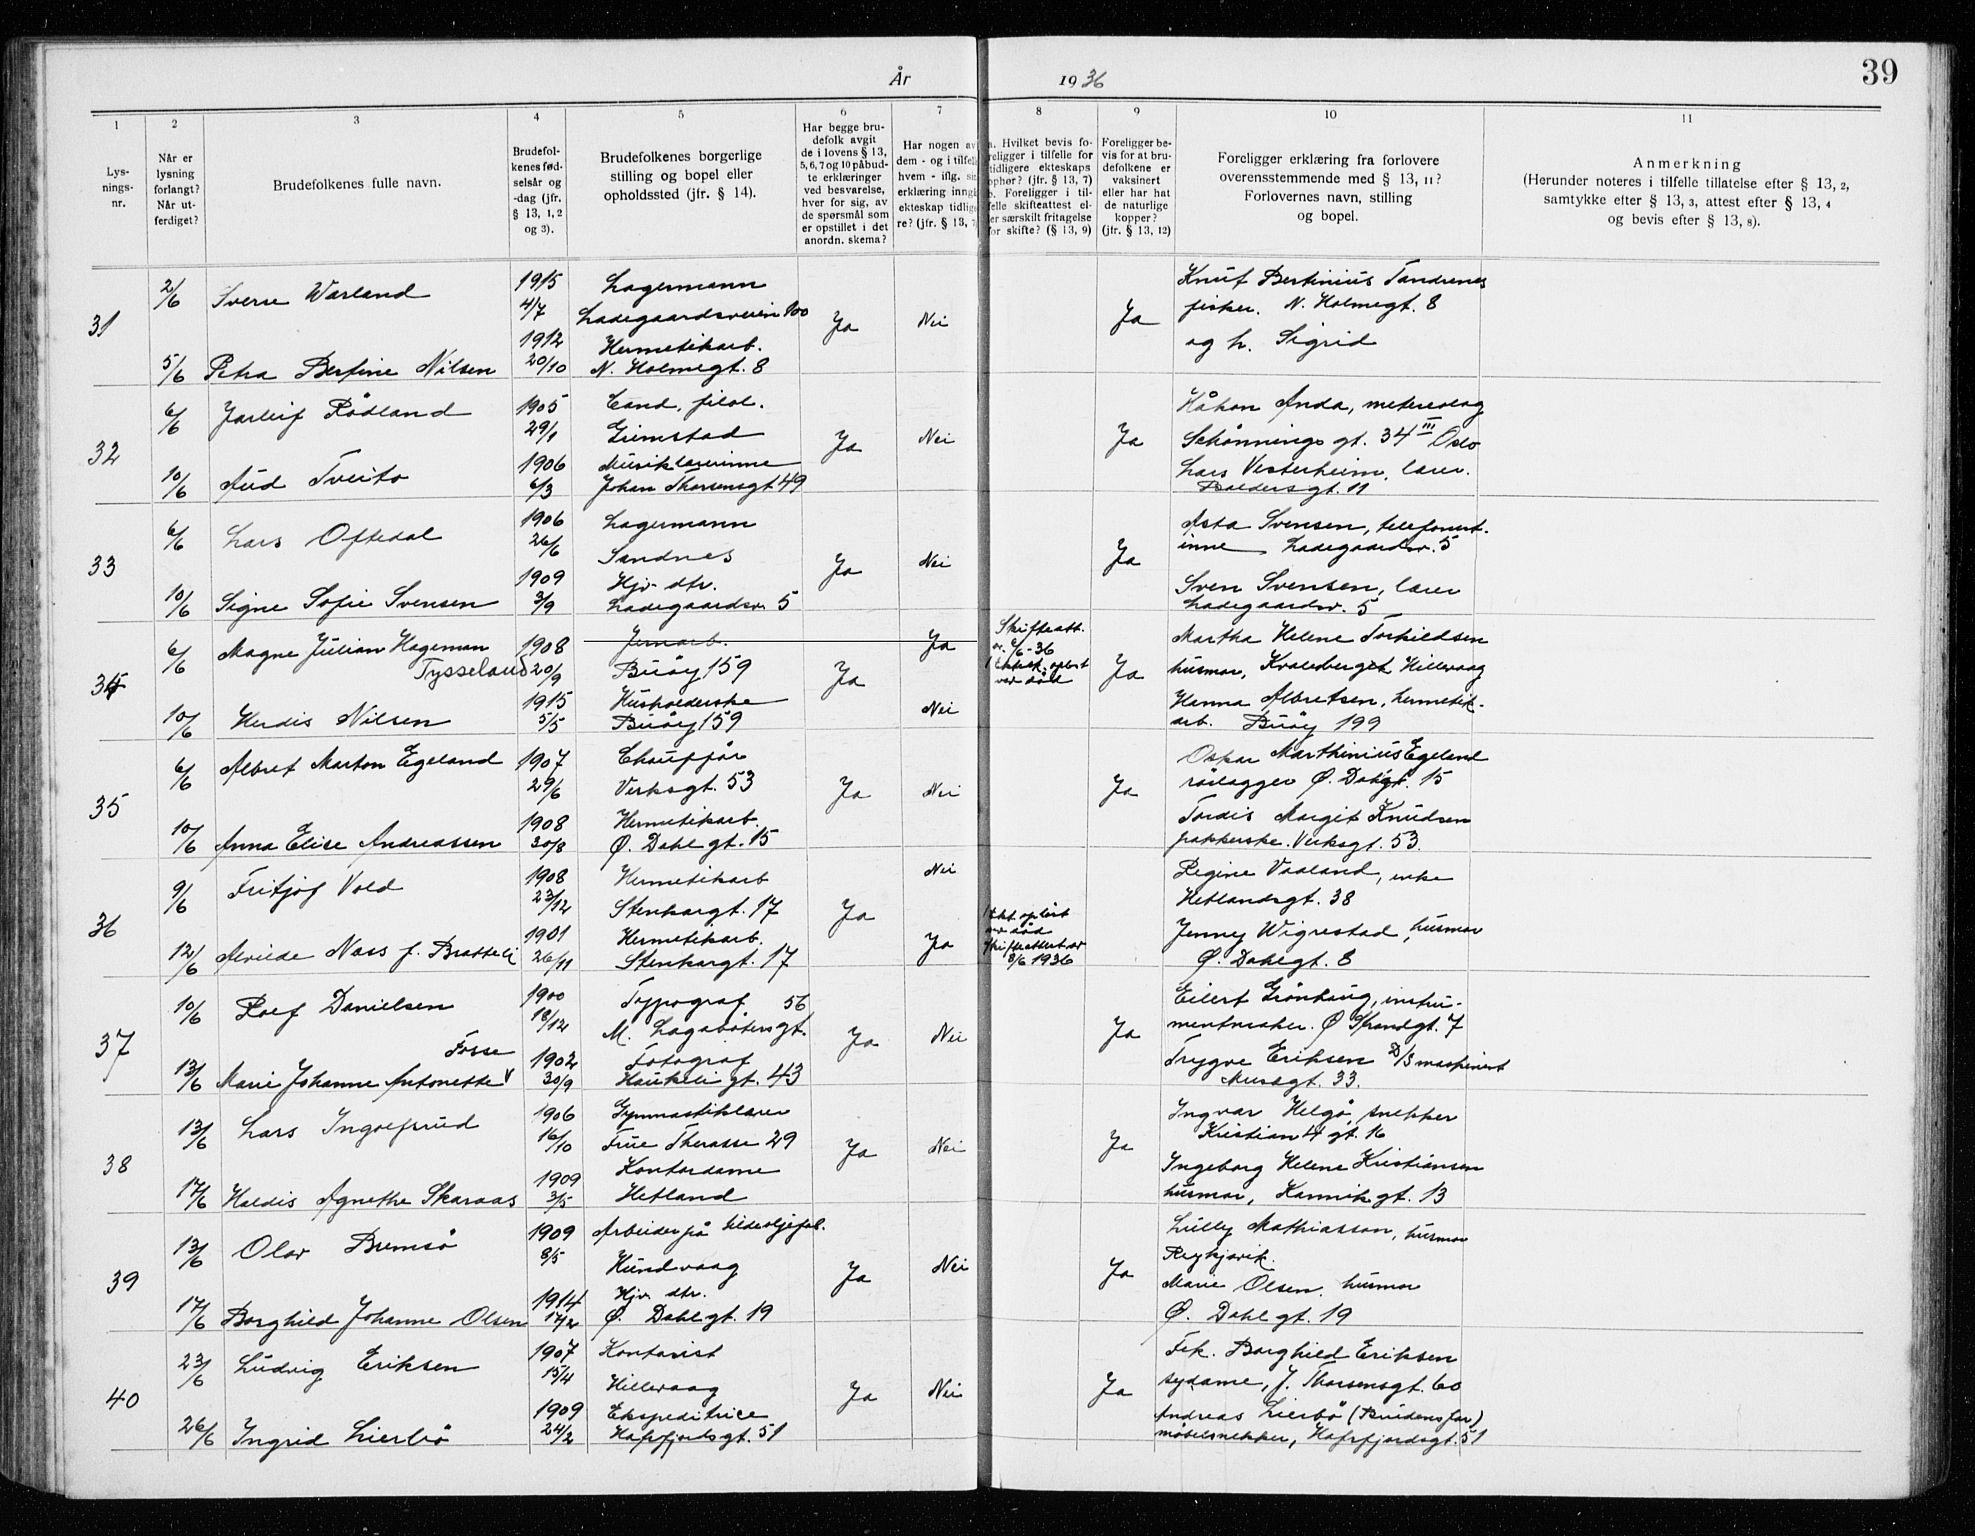 År 1936
39
1
Lysnings-
nr.
2
Når er
lysning
forlangt?
Når ut-
ferdiget?
3
Brudefolkenes fulle navn.
4
Brudefol-
kenes fød-
selsår og
-dag (jfr.
§ 13, 1, 2
og 3).
5
Brudefolkenes borgerlige
stilling og bopel eller
opholdssted (jfr. § 14).
6
Har begge bru-
defolk avgit
de i lovens § 13,
5, 6, 7 og 10 påbud-
te erklæringer
ved besvarelse,
hver for sig, av
de spørsmål som
er opstillet i det
anordn. skema?
7
Har nogen av
dem - og i tilfelle
hvem - iflg. sin
erklæring inngå
ekteskap tidlige
re? (jfr. § 13, 7
8
a. Hvilket bevis fo-
religger i tilfelle for
tidligere ekteskaps
ophør? (jfr. § 13, 7)
b. Foreligger i til-
felle skifteattest el-
ler særskilt fritagelse
for skifte? (§ 13, 9)
9
Foreligger be-
vis for at bru-
defolkene er
vaksinert
eller har hat
de naturlige
kopper?
(jfr. § 13, 12)
10
Foreligger erklæring fra forlovere
overensstemmende med § 13, 11?
Forlovernes navn, stilling
og bopel.
11
Anmerkning
(Herunder noteres i tilfelle tillatelse efter § 13, 2,
samtykke efter § 13, 3, attest efter § 13, 4
og bevis efter § 13, 8).
31
2/6 Sverre Warland 1915 4/7 Lagermann
Ladegaardsveien 100
5/6 Petra Bertine Nilsen 1912 20/10 Hermetikarb.
N. Holmegt. 8
Ja Nei Ja
Knut Bertinius Tandrenes
fisker. N. Holmegt. 8
og h. Sigrid
32
6/6 Jarleif Rødland 1905 29/1 Cand. filol.
Grimstad
10/6 Aud Tveito 1906 6/3 Musiklærerinne
Johan Thorsensgt 49
Ja Nei Ja
Håkon Anda, metereolog
Schønnings gt. 34 III Oslo
Lars Vesterheim, lærer.
Baldersgt. 11
33
6/6 Lars Oftedal 1906 26/6 Lagermann
Sandnes
10/6 Signe Sofie Svensen 1909 3/9 Hjv. dtr.
Ladegaardsv. 5
Ja Nei Ja
Asta Svensen, telefonist-
inne Ladegaardsv. 5
Sven Svensen, lærer
Ladegaardsv. 5
34
6/6 Magne Julian Hageman
Tysseland 1908 20/9 Jernarb.
Buøy 159
10/6 Herdis Nilsen 1915 5/5 Husholderske
Buøy 159
Ja Ja Nei
Skifteatt.
av 6/6-36
1 Ektesk. opløst
ved død
Ja
Martha Helene Torkildsen
husmor, Kvaleberget Hillevaag
Hanna Albretsen, hermetik-
arb. Buøy 199
35
6/6 Albret Marton Egeland 1907 29/6 Chauffør
Verksgt. 53
10/6 Anna Elise Andreassen 1908 30/8 Hermetikarb.
Ø. Dahlgt. 15
Ja Nei Ja
Oskar Marthinius Egeland
rørlegger Ø. Dahlgt. 15
Tordis Margit Knudsen
pakkerske. Verksgt. 53.
36
9/6 Fritjof Vold 1908 23/12 Hermetikarb
Stenkargt. 17
12/6 Alvilde Næss f. Bratteli 1901 26/11 Hermetikarb.
Stenkargt. 17
Ja Nei Ja
1 Ekt. opløst
ved død
Skifteattest av
8/6 1936
Regine Vaaland, enke
Hetlandsgt. 38
Jenney Wigrestad, husmor
Ø. Dahlgt. 8
37
10/6 Rolf Danielsen 1900 18/12 Typograf 56
M. Lagabøtersgt.
13/6 Marie Johanne Antonette V Fosse 1902 30/9 Fotograf
Haukeligt. 43
Ja Nei Ja
Eilert Grønhaug, instru-
mentmaker. Ø Strandgt. 7
Trygve Eriksen D/S maskinist
Musegt. 33.
38
13/6 Lars Ingolfsrud 1906 16/10 Gymnastiklærer
Frue Therasse 29
17/6 Haldis Agnethe Skaraas 1909 3/5 Kontordame
Hetland
Ja Nei Ja
Ingvar Helgø, snekker
Kristian 4 gt. 16
Ingeborg Helene Kristiansen
husmor, Kannikgt. 13
39
13/6 Olav Bremsø 1909 8/5 Arbeider på sildeoljefab.
Hundvaag
17/6 Borghild Johanne Olsen 1914 17/2 Hjv. dtr.
Ø. Dahlgt. 19
Ja Nei Ja
Lully Mathiasson, husmor
Reykjavik.
Marie Olsen, husmor
Ø. Dahlgt. 19
40
23/6 Ludvig Eriksen 1907 15/4 Kontorist
Hillevaag
26/6 Ingrid Lierbø 1909 24/2 Ekspeditrice
Hafrfjordsgt. 51
Ja Nei Ja
Frk. Borghild Eriksen
sydame, J. Thorsensgt. 60
Andreas Lierbø (Brudens far)
møbelsnekker, Hafrsfjordsgt. 51